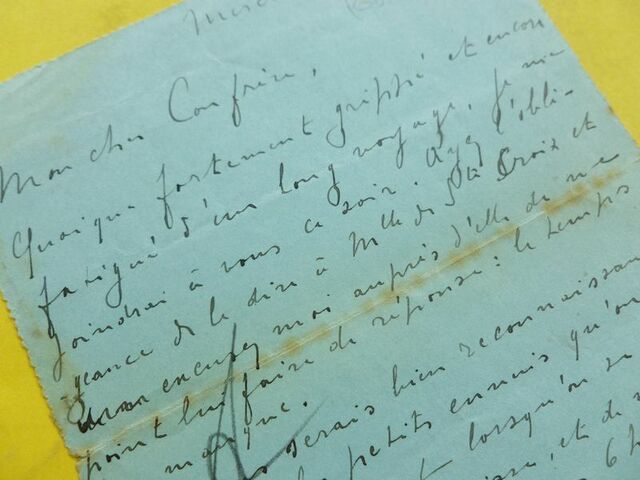 Mon cher Confrère,
Quoique fortement grippé et encore
fatigué d'un long voyage, je me
joindrai à vous ce soir. Ayez l'obli-
geance de le dire à Mlle de Ste Croix et
excusez moi auprès d'elle de ne
point lui faire de réponse : le temps
manque.
serais bien reconnaissant
petits ennuis qu'on
lorsqu'on se
et de
6 h